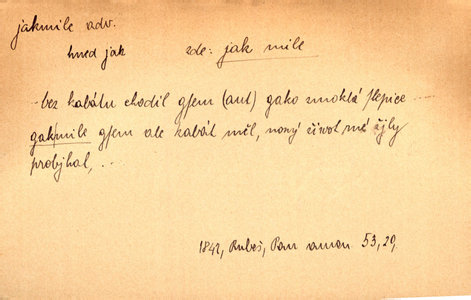 jakmile adv.
hned jak zde: jak mile
-- bez kabátu chodil gsem (aut) gako zmoklá slepice ----
gak|mile gsem ale kabát měl, nowý žiwot mé žjly
probjhal, ...
1842, Rubeš, Pan aman. 53, 29,